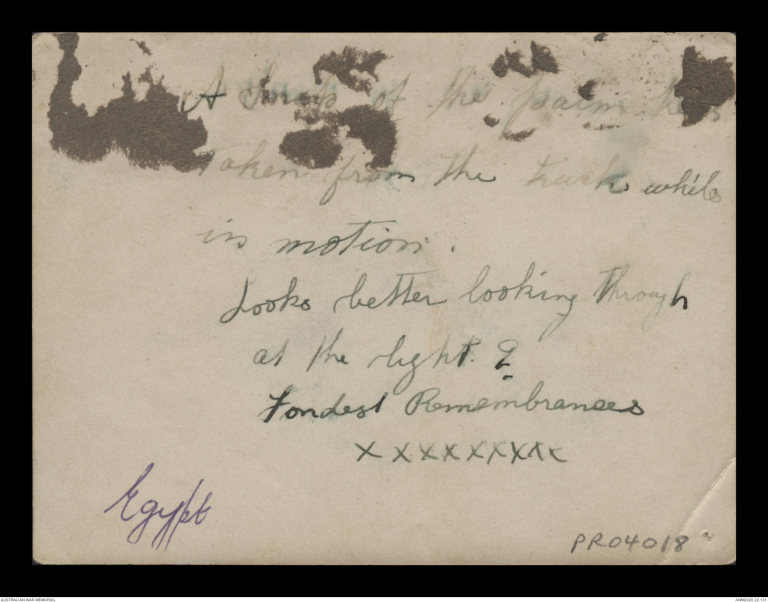 A Snap of the palm trees
Taken from the truck while
in motion.
Looks better looking through
at the light ?
Fondest Remembrances
x x x x x x x x x
Egypt
PR04018
AUSTRALIAN WAR MEMORIAL